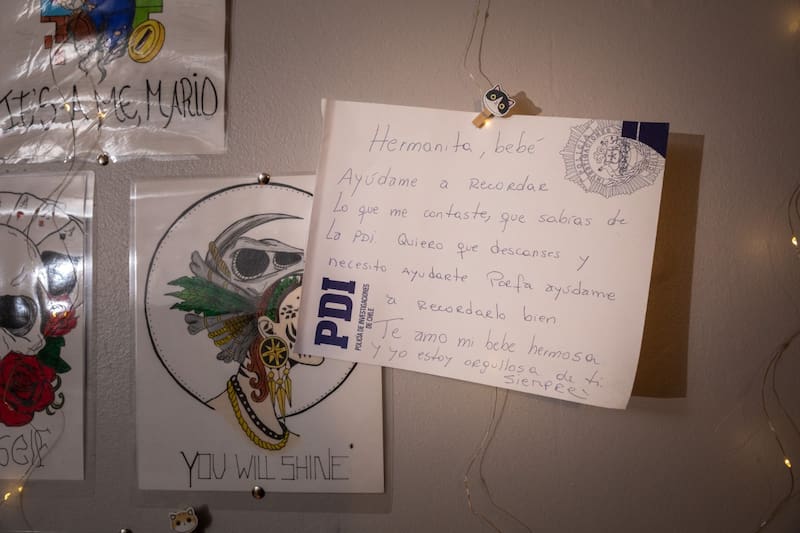 IT'S A ME, MARIO
SELF
YOU WILL SHINE
Hermanita, bebé
Ayúdame a Recordar
Lo que me contaste, que sabías de
La PDI. Quiero que descanses y
necesito ayudarte Porfa ayúdame
a recordarlo bien
Te amo mi bebe hermosa
y yo estoy orgullosa de ti
siempre
PDI
POLICÍA DE INVESTIGACIONES
DE CHILE